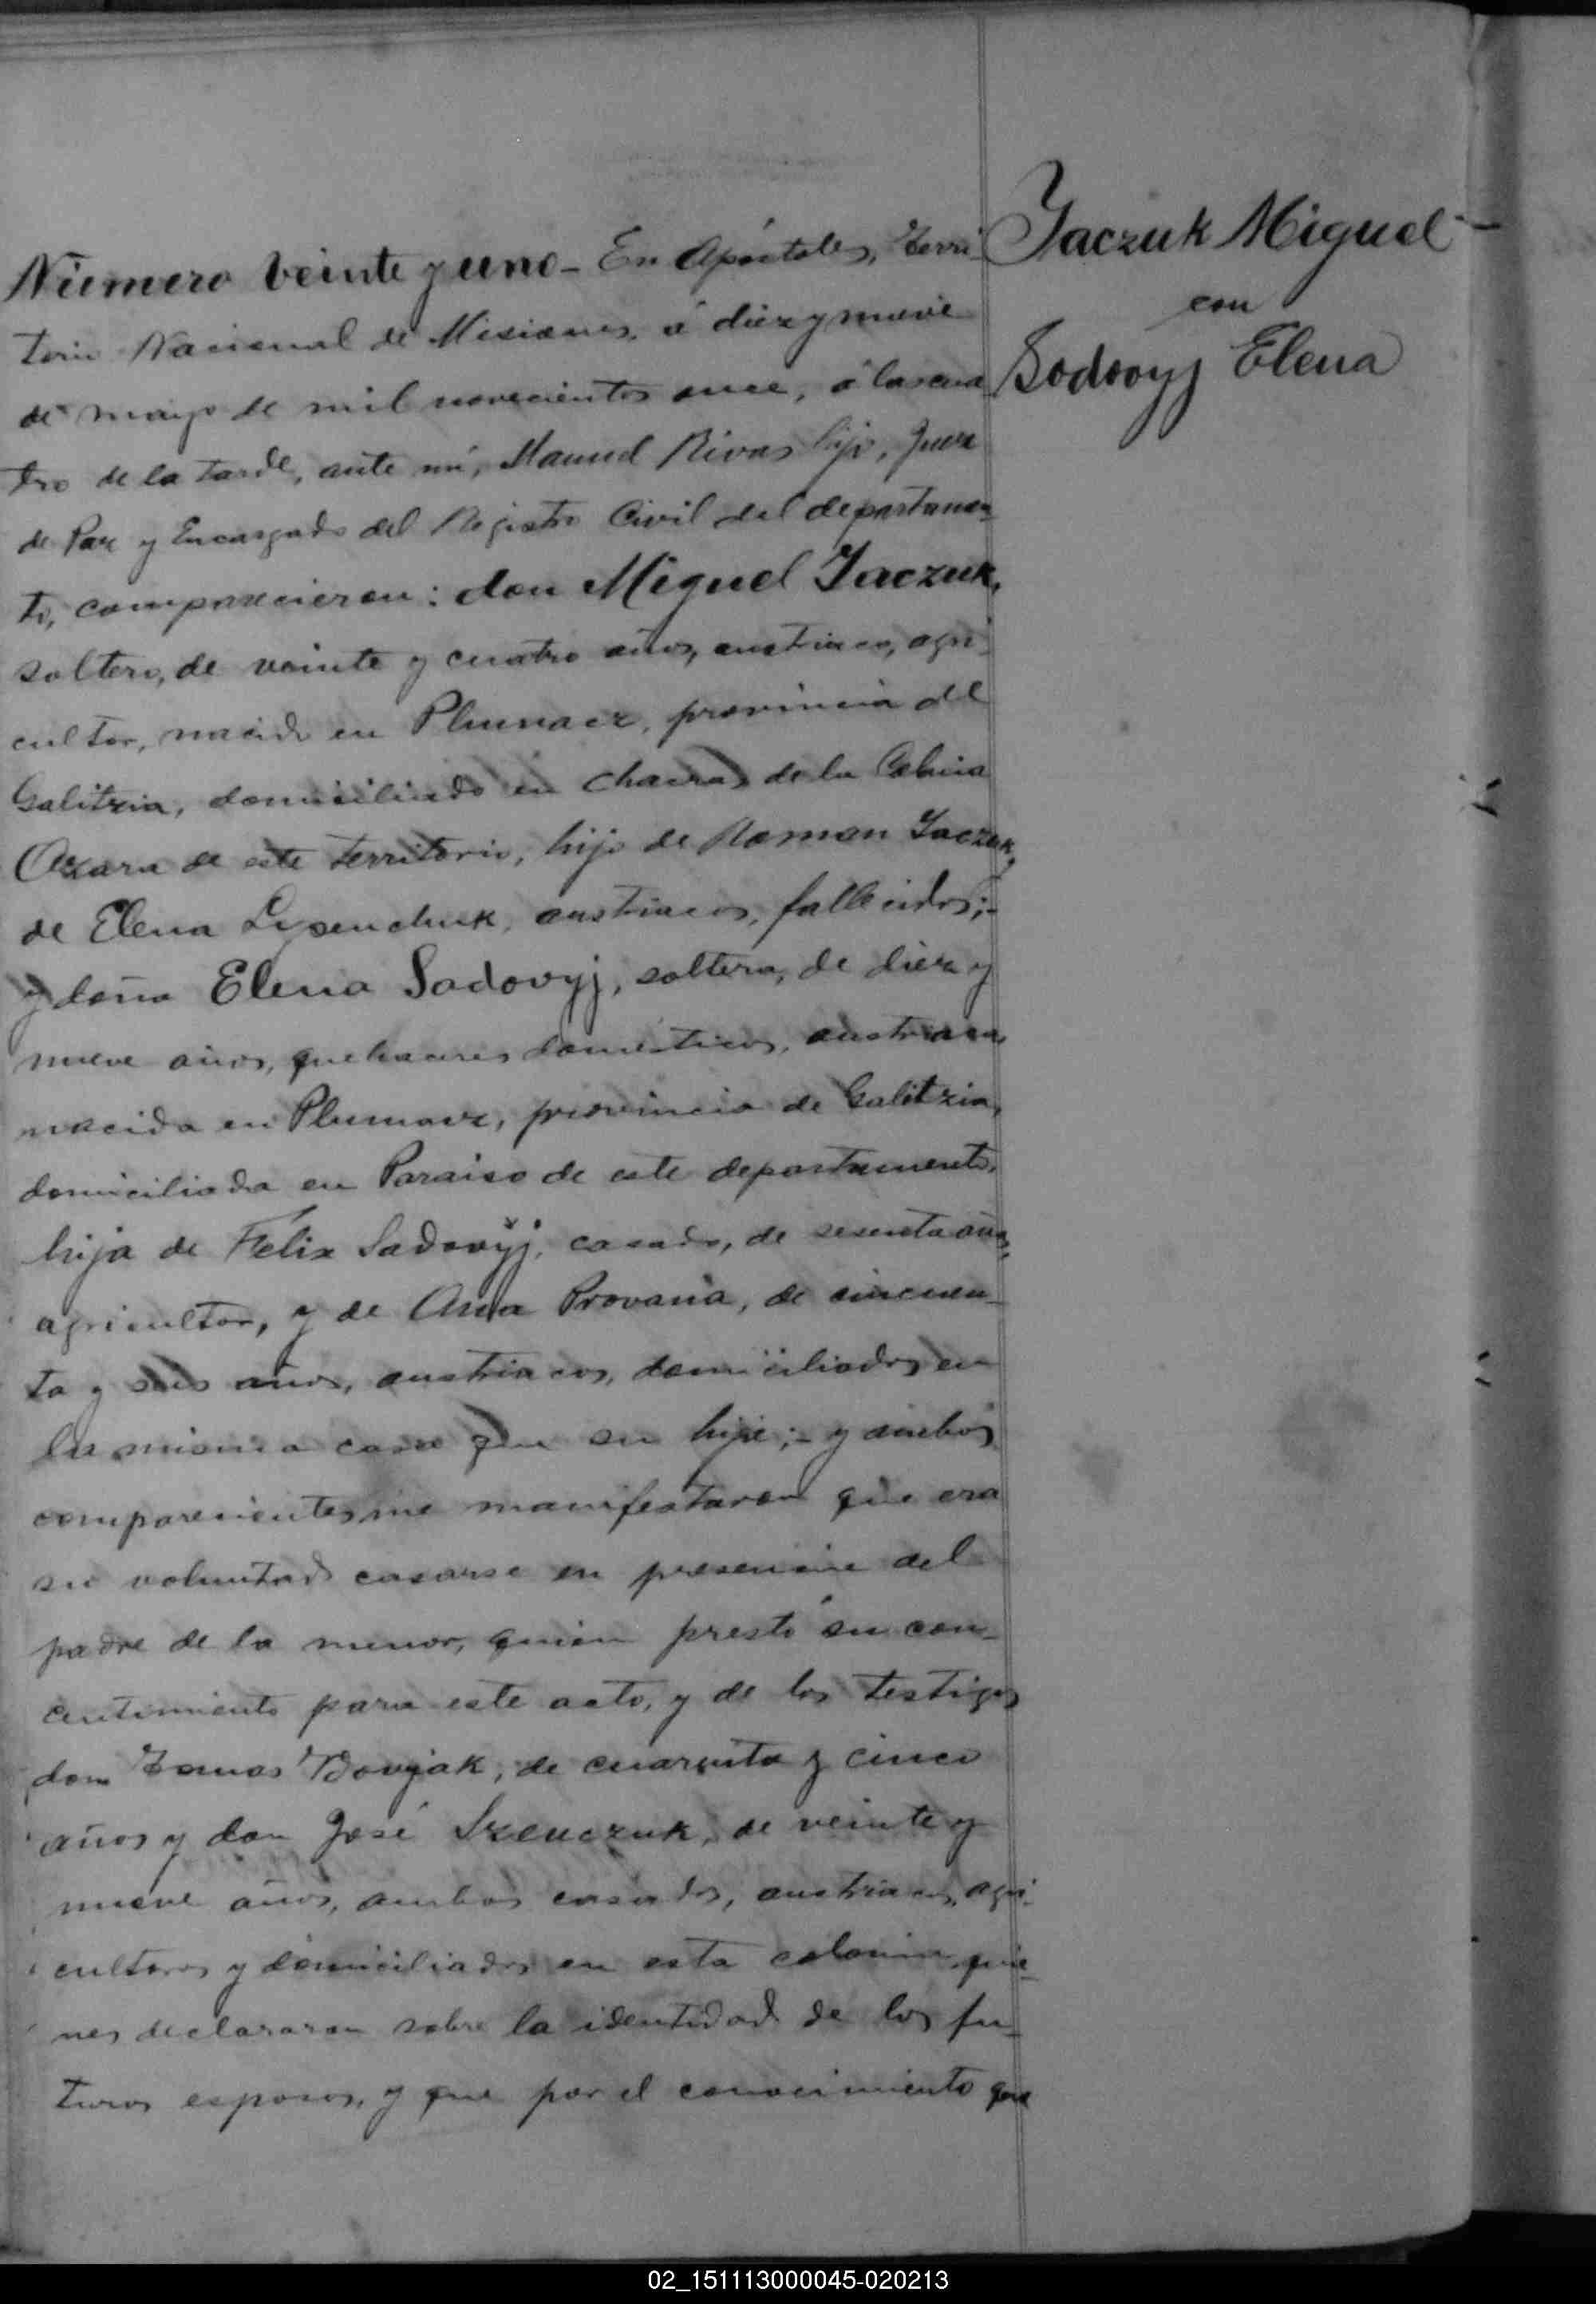 Número veinte y uno - En Apóstoles, Terri-
torio Nacional de Misiones, á diez y nueve
de mayo de mil novecientos once, á las cua
tro de la tarde, ante mí, Manuel Rivas hijo, Juez
de Paz y Encargado del Registro Civil del departamen-
to, comparecieron: don Miguel Jaczuk,
soltero, de veinte y cuatro años, austriaco, agri-
cultor, nacido en Plumacz, provincia de
Galitzia, domiciliado en chacras de la Colonia
Azara de este territorio, hijo de Roman Jaczuk y
de Elena Lysenchuk, austriacos, fallecidos;-
y doña Elena Sadovyj, soltera, de diez y
nueve años, quehaceres domésticos, austriaca,
nacida en Plumacz, provincia de Galitzia,
domiciliada en Paraiso de este departamento,
hija de Félix Sadovyj, casado, de sesenta años,
agricultor, y de Ana Provania, de cincuen-
ta y seis años, austriacos, domiciliados en
la misma casa que su hija;- y ambos
comparecientes me manifestaron que era
su voluntad casarse en presencia del
padre de la menor, quien prestó su con-
centimiento para este acto, y de los testigos
don Tomas Bovjak, de cuarenta y cinco
años y don José Szenczuk, de veinte y
nueve años, ambos casados, austriacos, agri-
cultores y domiciliados en esta colonia, quie-
nes declararon sobre la identidad de los fu-
turos esposos, y que por el conocimiento que
Jaczuk Miguel
con
Sodovyj Elena
02_151113000045-020213